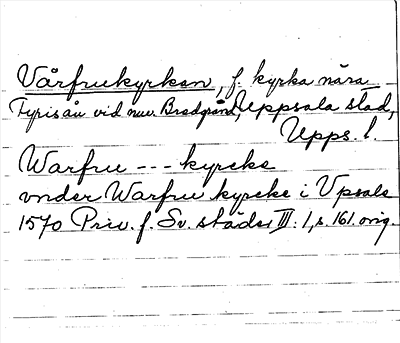 Vårfrukyrkan, f. kyrka nära
Fyrisån vid nuv. Bredgränd, Uppsala stad,
Upps. l.
Warfru --- kyrcke
vnder Warfru kyrcke i Vpsala
1570 Priv. f. Sv. städer III: 1, s. 161. orig.